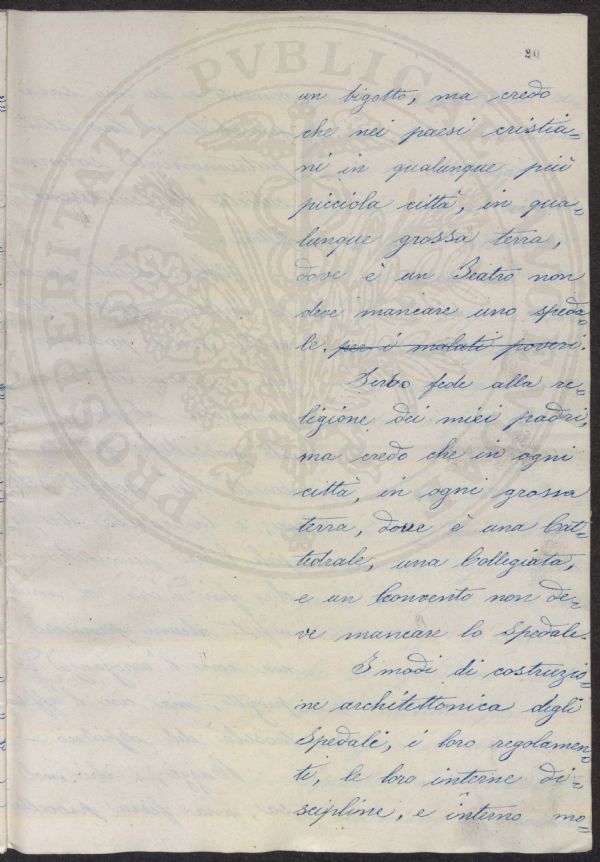 20
un bigotto, ma credo
che nei paesi cristia=
ni in qualunque più
picciola città, in qua=
lunque grossa terra,
dove è un Teatro non
deve mancare uno speda=
le. per i malati poveri.
Serbo fede alla re=
ligione dei miei padri,
ma credo che in ogni
città, in ogni grossa
terra, dove è una Cat=
tedrale, una Collegiata,
e un Convento non de=
ve mancare lo Spedale.
I modi di costruzio=
ne architettonica degli
Spedali, i loro regolamen=
ti, le loro interne di=
scipline, e interno mo=